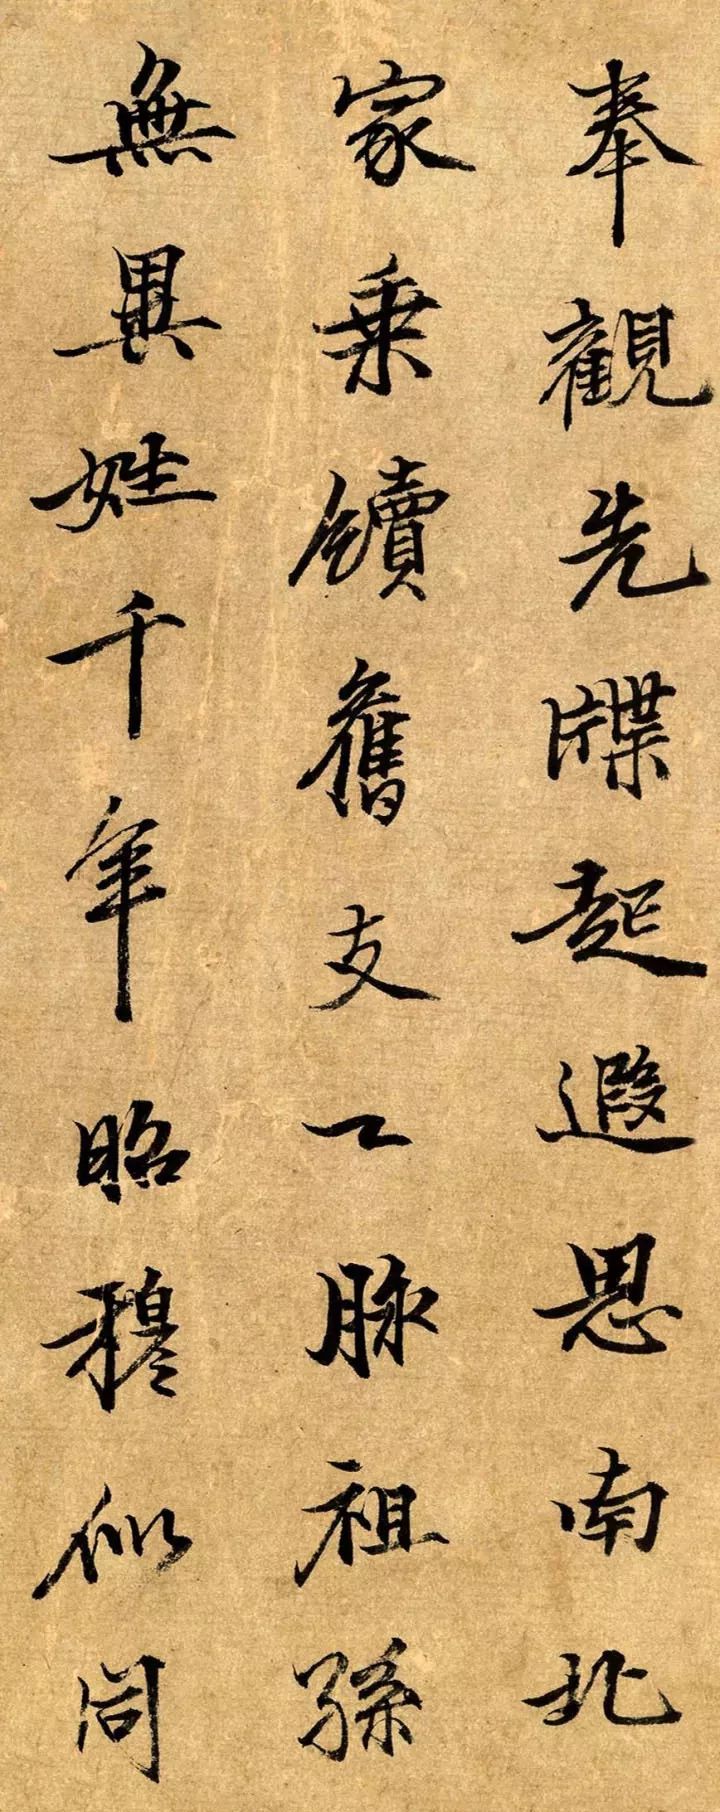 奉觀先牒起遐思南北
家乘續舊支一脉祖孫
無異姓千年昭穆似同